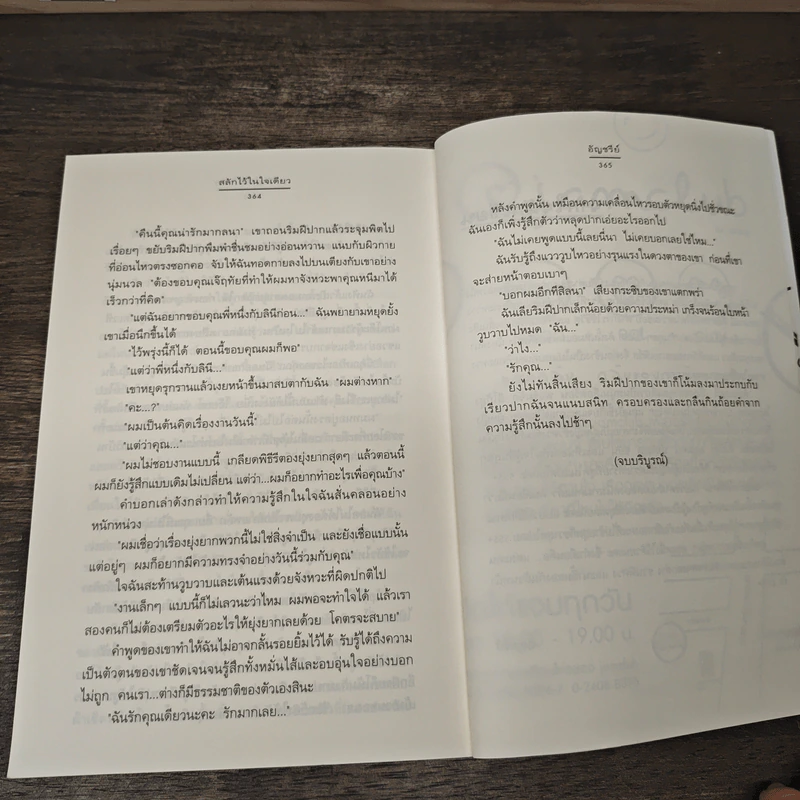 สลักไว้ในใจเดียว
364
"คืนนี้คุณน่ารักมากลนา" เขาถอนริมฝีปากแล้วระจุมพิตไป
เรื่อยๆ ขยับริมฝีปากพึมพำชื่นชมอย่างอ่อนหวาน แนบกับผิวกาย
ที่อ่อนไหวตรงซอกคอ จับให้ฉันทอดกายลงไปบนเตียงกับเขาอย่าง
นุ่มนวล "ต้องขอบคุณเจ๊ฤทัยที่ทำให้ผมหาจังหวะพาคุณหนีมาได้
เร็วกว่าที่คิด"
"แต่ฉันอยากขอบคุณพี่หนึ่งกับลินีก่อน..." ฉันพยายามหยุดยั้ง
เขาเมื่อนึกขึ้นได้
"ไว้พรุ่งนี้ก็ได้ ตอนนี้ขอบคุณผมก็พอ"
"แต่ว่าพี่หนึ่งกับลินี..."
เขาหยุดรุกรานแล้วเงยหน้าขึ้นมาสบตากับฉัน "ผมต่างหาก"
"คะ...?"
"ผมเป็นต้นคิดเรื่องงานวันนี้"
"แต่ว่าคุณ..."
"ผมไม่ชอบงานแบบนี้ เกลียดพิธีรีตองยุ่งยากสุดๆ แล้วตอนนี้
ผมก็ยังรู้สึกแบบเดิมไม่เปลี่ยน แต่ว่า...ผมก็อยากทำอะไรเพื่อคุณบ้าง"
คำบอกเล่าดังกล่าวทำให้ความรู้สึกในใจฉันสั่นคลอนอย่าง
หนักหน่วง
"ผมเชื่อว่าเรื่องยุ่งยากพวกนี้ไม่ใช่สิ่งจำเป็น และยังเชื่อแบบนั้น
แต่อยู่ๆ ผมก็อยากมีความทรงจำอย่างวันนี้ร่วมกับคุณ"
ใจฉันสะท้านวูบวาบและเต้นแรงด้วยจังหวะที่ผิดปกติไป
"งานเล็กๆ แบบนี้ก็ไม่เลวนะว่าไหม ผมพอจะทำใจได้ แล้วเรา
สองคนก็ไม่ต้องเตรียมตัวอะไรให้ยุ่งยากเลยด้วย โคตรจะสบาย"
คำพูดของเขาทำให้ฉันไม่อาจกลั้นรอยยิ้มไว้ได้ รับรู้ได้ถึงความ
เป็นตัวตนของเขาชัดเจนจนรู้สึกทั้งหมั่นไส้และอบอุ่นใจอย่างบอก
ไม่ถูก คนเรา...ต่างก็มีธรรมชาติของตัวเองสินะ
"ฉันรักคุณเดียวนะคะ รักมากเลย..."
อัญชรีย์
365
หลังคำพูดนั้น เหมือนความเคลื่อนไหวรอบตัวหยุดนิ่งไปชั่วขณะ
ฉันเองก็เพิ่งรู้สึกตัวว่าหลุดปากเอ่ยอะไรออกไป
"ฉันไม่เคยพูดแบบนี้เลยนี่นา ไม่เคยบอกเลยใช่ไหม..."
ฉันรับรู้ถึงแววูบไหวอย่างรุนแรงในดวงตาของเขา ก่อนที่เขา
จะส่ายหน้าตอบเบาๆ
"บอกผมอีกทีสิลนา" เสียงกระซิบของเขาแตกพร่า
ฉันเลียริมฝีปากเล็กน้อยด้วยความประหม่า เกร็งจนร้อนใบหน้า
วูบวาบไปหมด "ฉัน..."
"ว่าไง..."
"รักคุณ..."
ยังไม่ทันสิ้นเสียง ริมฝีปากของเขาก็โน้มลงมาประกบกับ
เรียวปากฉันจนแนบสนิท ครอบครองและกลืนกินถ้อยคำจาก
ความรู้สึกนั้นลงไปช้าๆ
(จบบริบูรณ์)